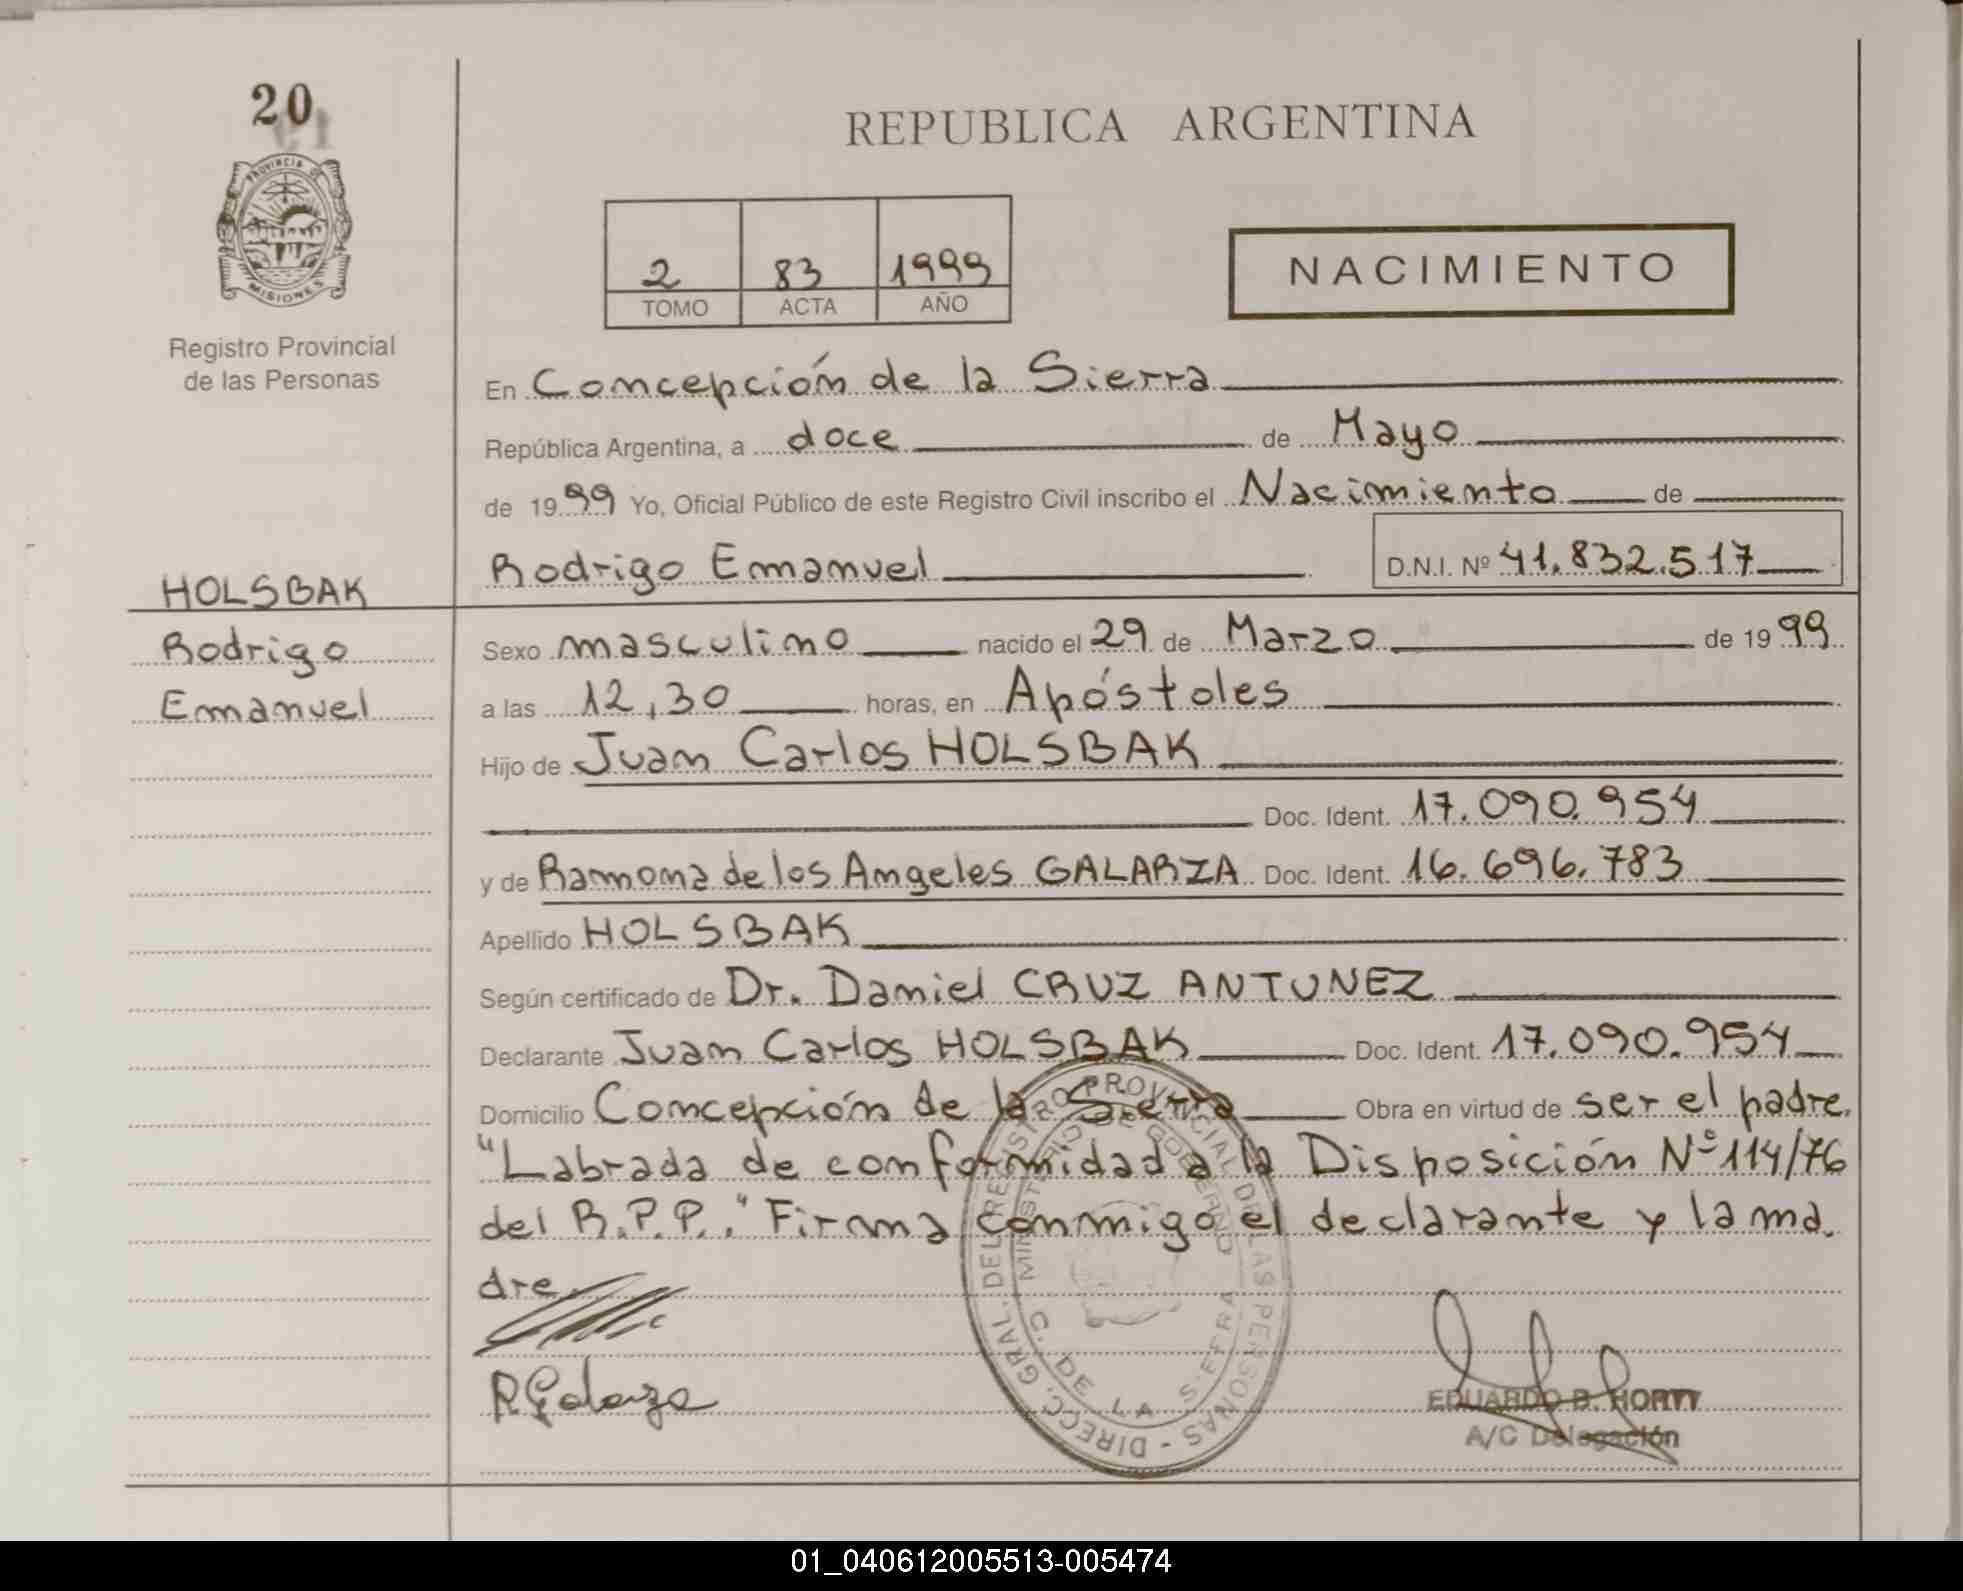 20
PROVINCIA DE
MISIONES
Registro Provincial
de las Personas
HOLSBAK
Rodrigo
Emanuel
REPUBLICA ARGENTINA
2 83 1999
TOMO ACTA AÑO
NACIMIENTO
En Concepción de la Sierra
República Argentina, a doce de Mayo
de 1999 Yo, Oficial Público de este Registro Civil inscribo el Nacimiento de
Rodrigo Emanuel D.N.I. Nº 41.832.517
Sexo masculino nacido el 29 de Marzo de 1999
a las 12,30 horas, en Apóstoles
Hijo de Juan Carlos HOLSBAK
Doc. Ident. 17.090.954
y de Ramona de los Angeles GALARZA Doc. Ident. 16.696.783
Apellido HOLSBAK
Según certificado de Dr. Daniel CRUZ ANTUNEZ
Declarante Juan Carlos HOLSBAK Doc. Ident. 17.090.954
Domicilio Concepción de la Sierra Obra en virtud de ser el padre.
"Labrada de conformidad a la Disposición Nº 114/76
del R.P.P.." Firma conmigo el declarante y la ma.
dre
R Galarza
DIRECC. GRAL. DEL REGISTRO PROVINCIAL DE LAS PERSONAS -
MINISTERIO DE GOBIERNO
C. DE LA SIERRA
EDUARDO B. HORTY
A/C Delegación
01_040612005513-005474